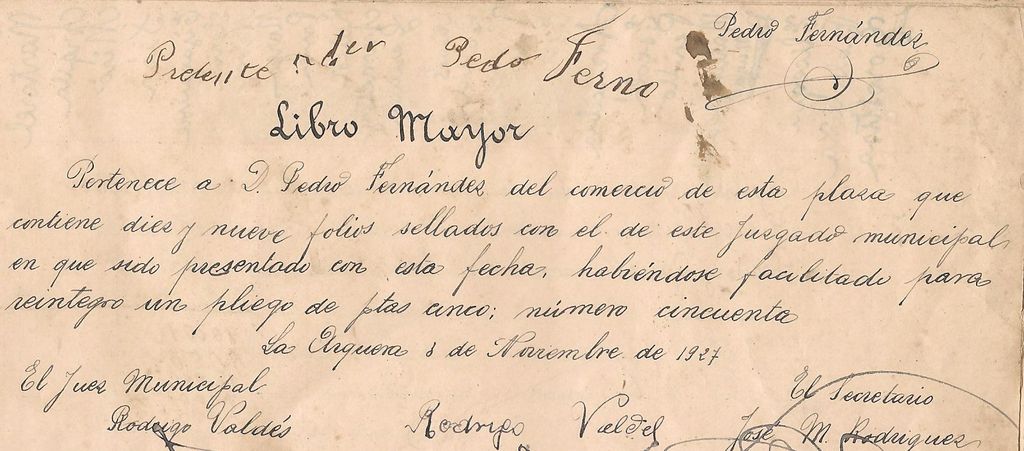 Pedro Fernández
Pedo Ferno
Libro Mayor
Pertenece a D. Pedro Fernández del comercio de esta plaza que
contiene diez y nueve folios sellados con el de este Juzgado municipal,
en que sido presentado con esta fecha, habiéndose facilitado para
reintegro un pliego de ptas cinco; número cincuenta
La Arquera 8 de Noviembre de 1927
El Juez Municipal
El Secretario
Rodrigo Valdés Rodrigo Valdel José M. Rodriguez